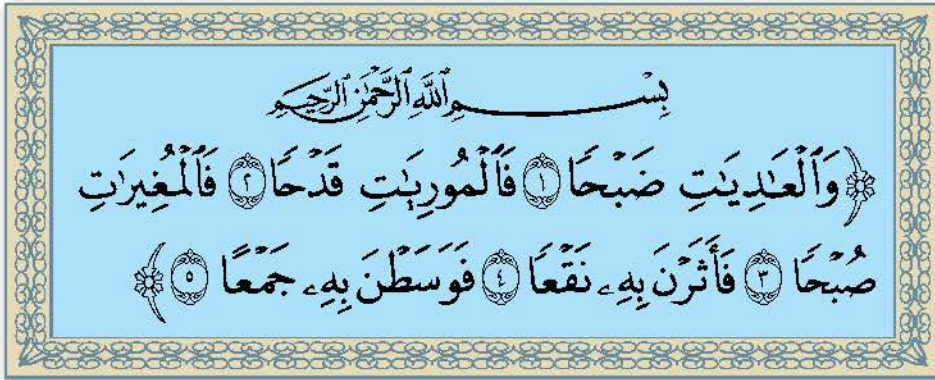 بِسْمِ ٱللَّهِ ٱلرَّحْمَٰنِ ٱلرَّحِيمِ
﴿وَٱلْعَٰدِيَٰتِ ضَبْحًا ١ فَٱلْمُورِيَٰتِ قَدْحًا ٢ فَٱلْمُغِيرَٰتِ
صُبْحًا ٣ فَأَثَرْنَ بِهِۦ نَقْعًا ٤ فَوَسَطْنَ بِهِۦ جَمْعًا ٥﴾